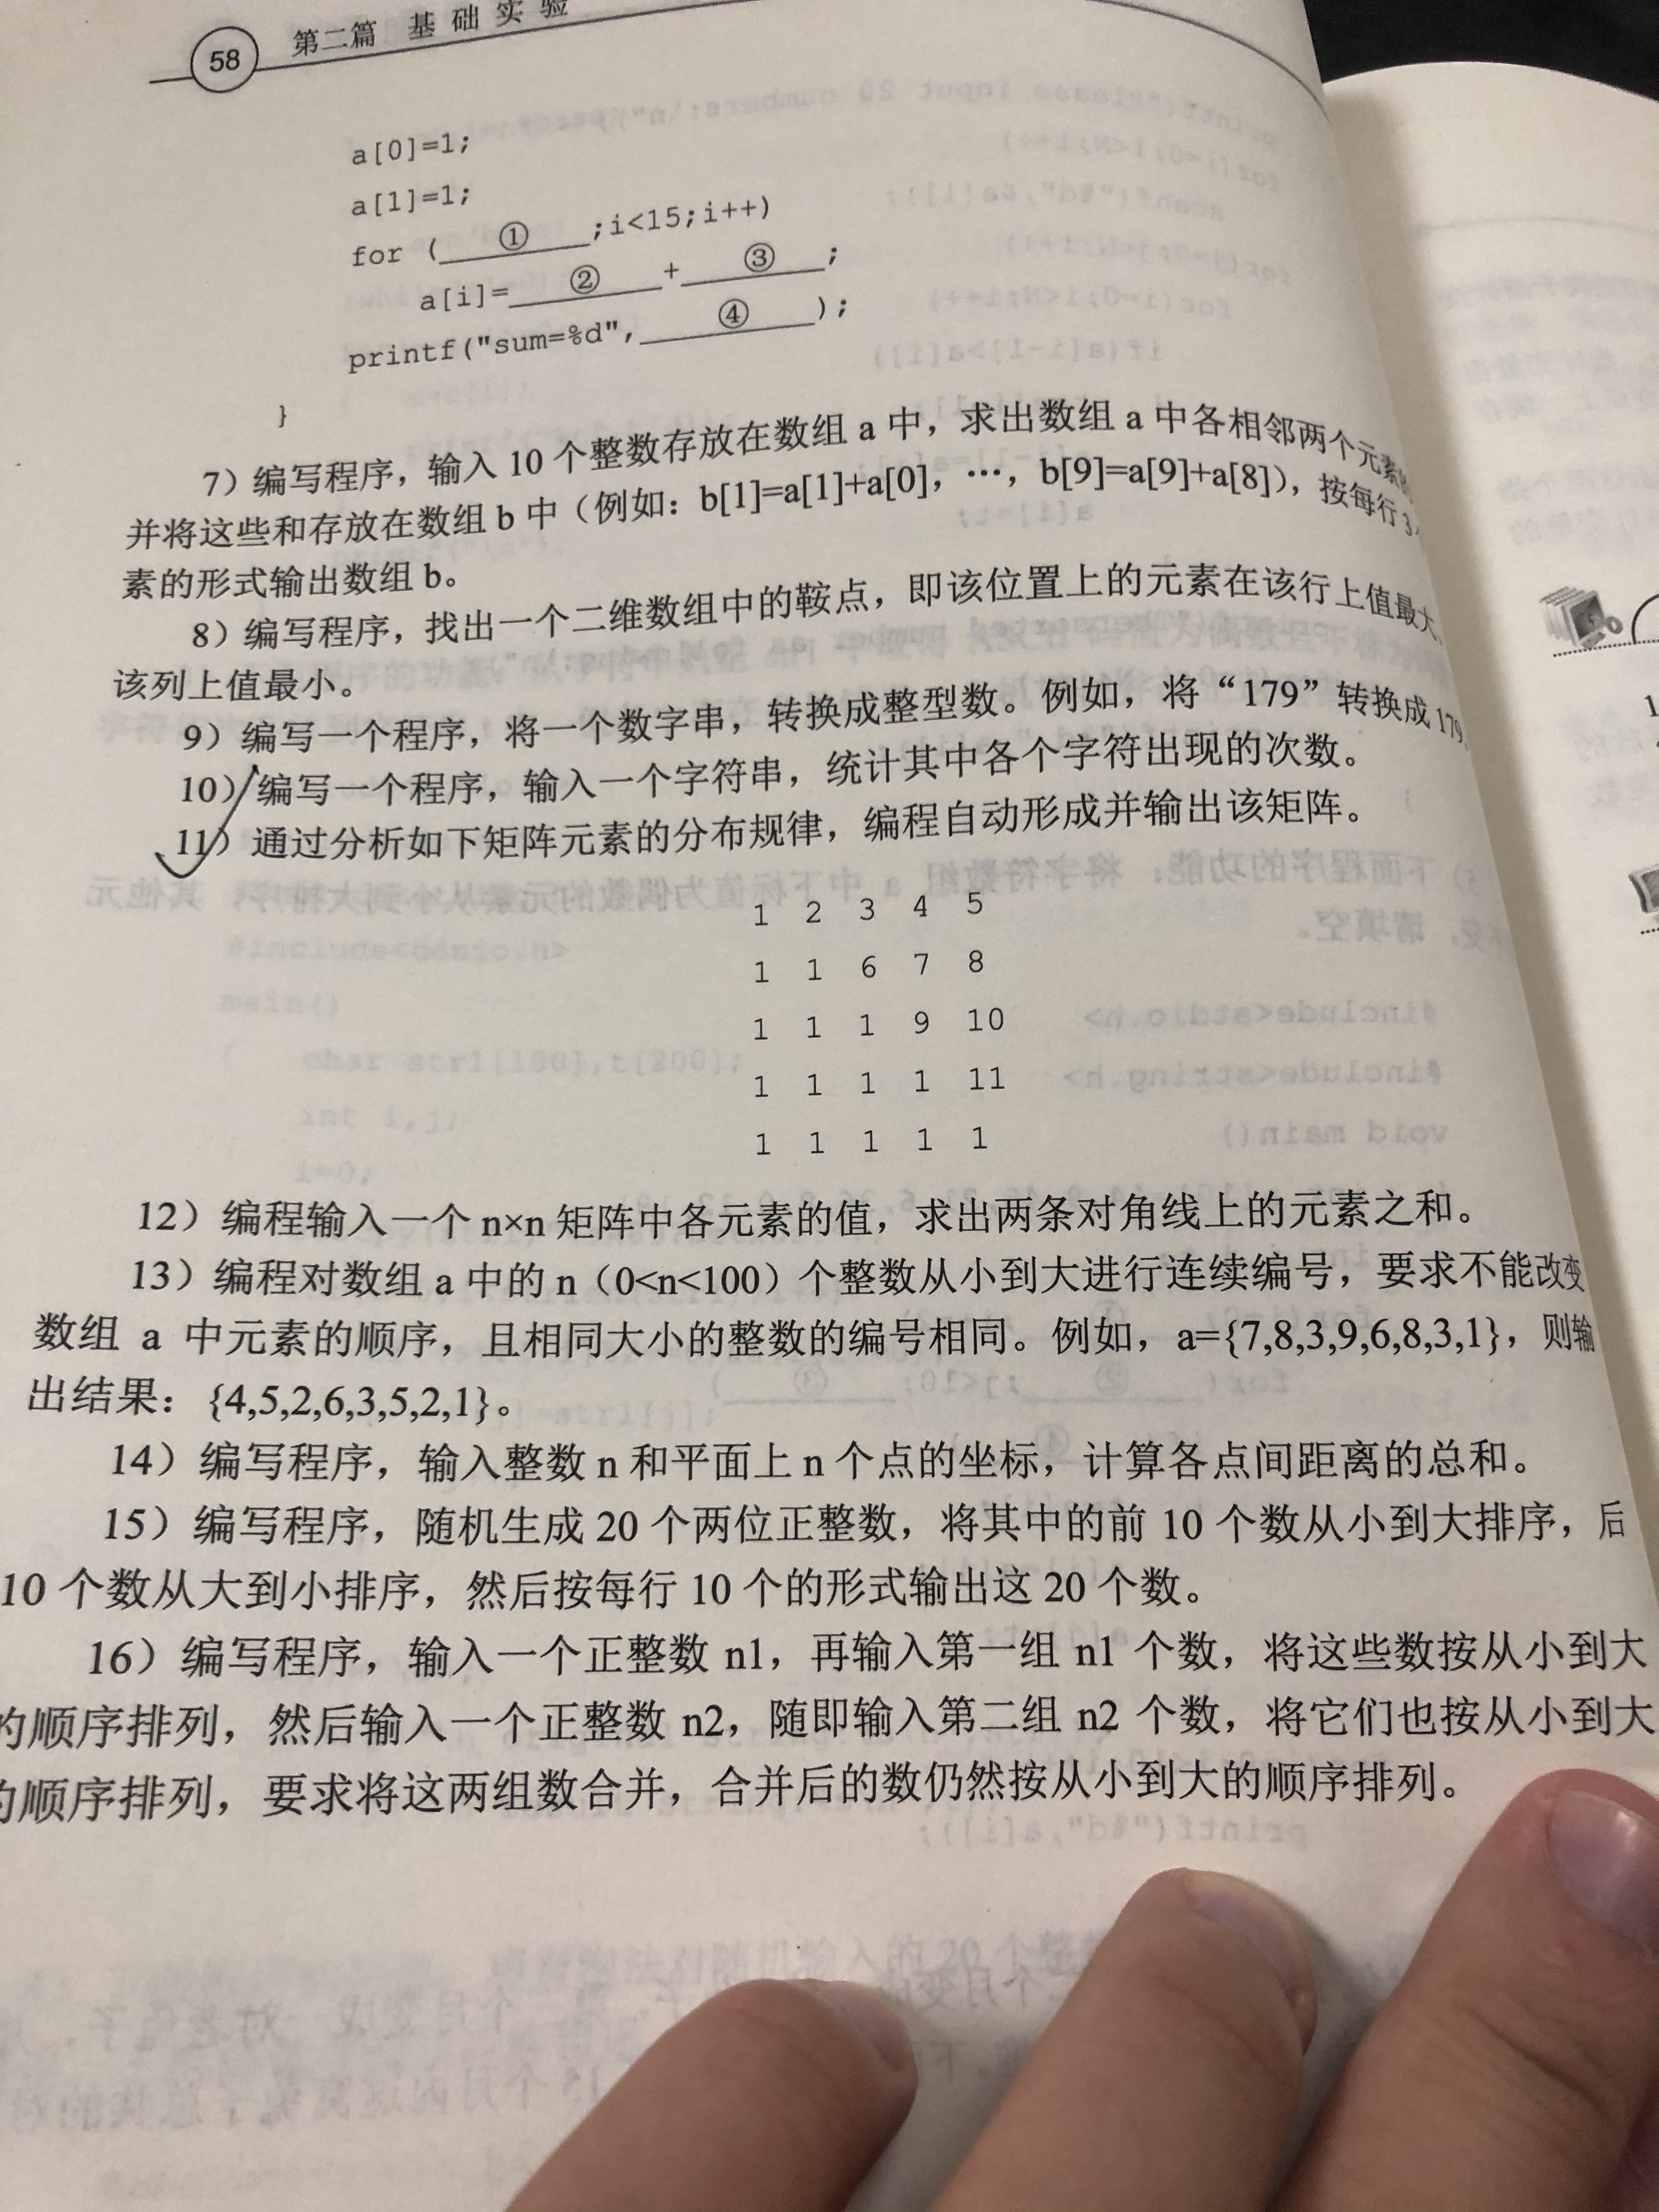 58 第二篇 基础实验
a[0]=1;
a[1]=1;
for (___①___;i<15;i++)
a[i]=___②___+___③___;
printf("sum=%d",___④___);
}
7）编写程序，输入 10 个整数存放在数组 a 中，求出数组 a 中各相邻两个元素
并将这些和存放在数组 b 中（例如：b[1]=a[1]+a[0]，…，b[9]=a[9]+a[8]），按每行 3
素的形式输出数组 b。
8）编写程序，找出一个二维数组中的鞍点，即该位置上的元素在该行上值最大、
该列上值最小。
9）编写一个程序，将一个数字串，转换成整型数。例如，将“179”转换成 179。
10）编写一个程序，输入一个字符串，统计其中各个字符出现的次数。
11）通过分析如下矩阵元素的分布规律，编程自动形成并输出该矩阵。
1 2 3 4 5
1 1 6 7 8
1 1 1 9 10
1 1 1 1 11
1 1 1 1 1
12）编程输入一个 n×n 矩阵中各元素的值，求出两条对角线上的元素之和。
13）编程对数组 a 中的 n（0<n<100）个整数从小到大进行连续编号，要求不能改变
数组 a 中元素的顺序，且相同大小的整数的编号相同。例如，a={7,8,3,9,6,8,3,1}，则输
出结果：{4,5,2,6,3,5,2,1}。
14）编写程序，输入整数 n 和平面上 n 个点的坐标，计算各点间距离的总和。
15）编写程序，随机生成 20 个两位正整数，将其中的前 10 个数从小到大排序，后
10 个数从大到小排序，然后按每行 10 个的形式输出这 20 个数。
16）编写程序，输入一个正整数 n1，再输入第一组 n1 个数，将这些数按从小到大
的顺序排列，然后输入一个正整数 n2，随即输入第二组 n2 个数，将它们也按从小到大
的顺序排列，要求将这两组数合并，合并后的数仍然按从小到大的顺序排列。